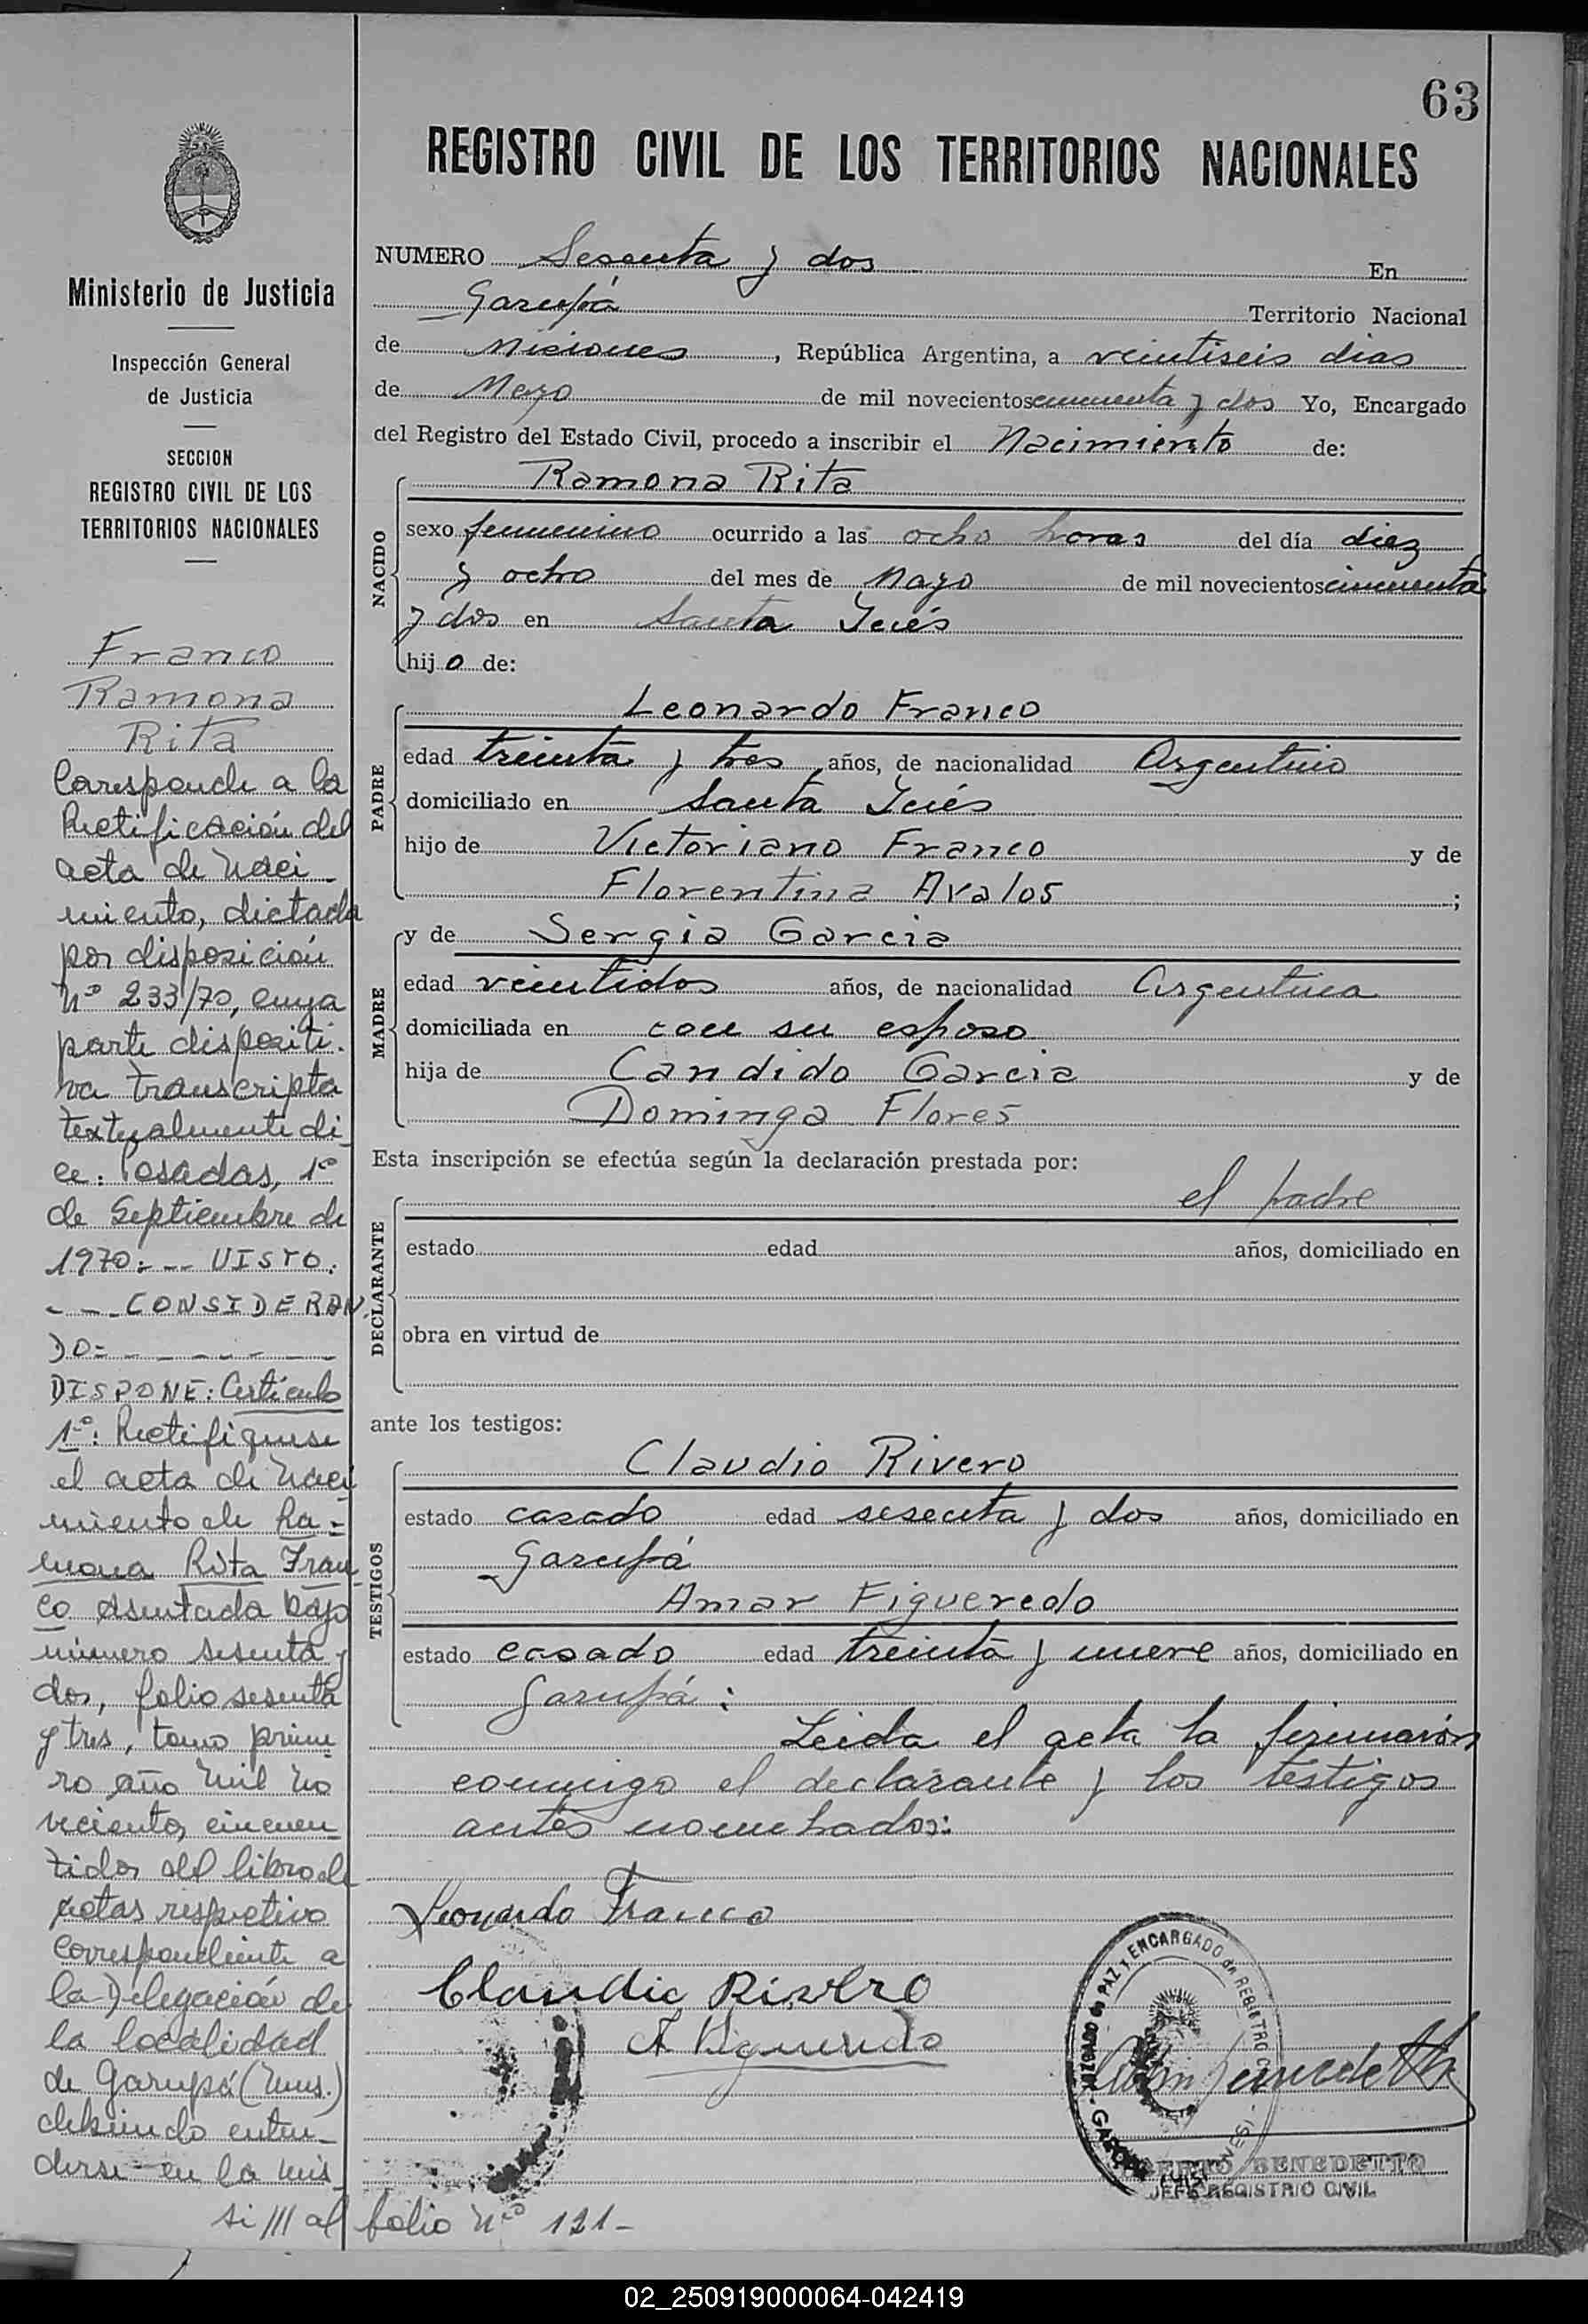 63
REGISTRO CIVIL DE LOS TERRITORIOS NACIONALES
NUMERO Sesenta y dos En
Garupá Territorio Nacional
de Misiones, República Argentina, a veintiseis dias
de Mayo de mil novecientos cincuenta y dos Yo, Encargado
del Registro del Estado Civil, procedo a inscribir el Nacimiento de:
NACIDO
Ramona Rita
sexo femenino ocurrido a las ocho horas del día diez
y ocho del mes de Mayo de mil novecientos cincuenta
y dos en Santa Inés
hij o de:
PADRE
Leonardo Franco
edad treinta y tres años, de nacionalidad Argentino
domiciliado en Santa Inés
hijo de Victoriano Franco y de
Florentina Avalos ;
MADRE
y de Sergia Garcia
edad veintidos años, de nacionalidad Argentina
domiciliada en con su esposo
hija de Candido Garcia y de
Dominga Flores
Esta inscripción se efectúa según la declaración prestada por:
DECLARANTE
el padre
estado edad años, domiciliado en
obra en virtud de
ante los testigos:
TESTIGOS
Claudio Rivero
estado casado edad sesenta y dos años, domiciliado en
Garupá
Amar Figueredo
estado casado edad treinta y nueve años, domiciliado en
Garupá:
Leida el acta la firmaron
conmigo el declarante y los testigos
antes nombrados:
Leonardo Franco
Claudio Rivero
A Figueredo
JUZGADO de PAZ Y ENCARGADO de REGISTRO
BENEDETTO
JEFE REGISTRIO CIVIL
Ministerio de Justicia
Inspección General
de Justicia
SECCION
REGISTRO CIVIL DE LOS
TERRITORIOS NACIONALES
Franco
Ramona
Rita
Corresponde a la
Rectificación del
acta de Naci
miento, dictada
por disposición
Nº 233/70, cuya
parte dispositi-
va transcripta
textualmente di
ce: Posadas, 1º
de Septiembre de
1970:-- VISTO:
-- CONSIDERAN
DO:- - - - - -
DISPONE: Artículo
1º: Rectifiquese
el acta de Naci
miento de Ra=
mona Rita Fran
co asentada bajo
número sesenta y
dos, folio sesenta
y tres, tomo prime
ro año mil no
vecientos cincuen
tidos del libro de
actas respetivo
correspondiente a
la Delegación de
la localidad
de Garupá (Mnes.)
debiendo enten-
derse en la mis
si /// al folio Nº 121-
02_250919000064-042419